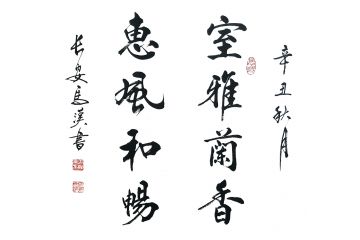 辛丑秋月
室雅蘭香
惠風和暢
长安馬漢書